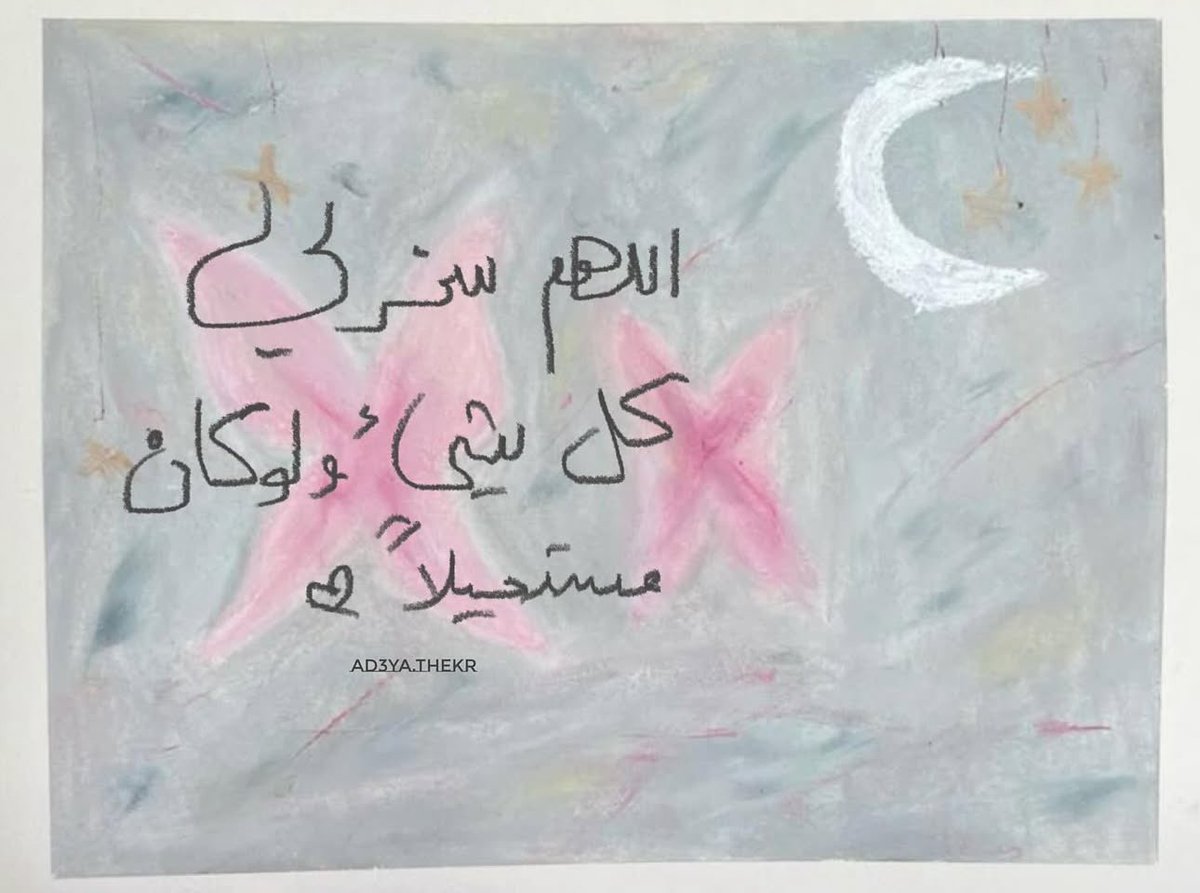 اللهم سخر لي
كل شيئ ولو كان
مستحيلاً
AD3YA.THEKR